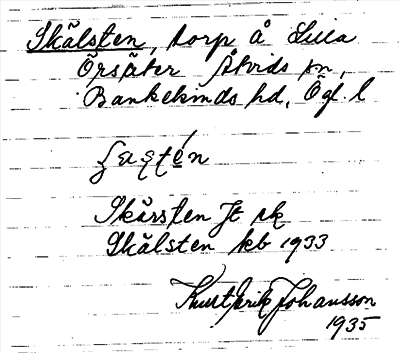 Skålsten, torp å Lilla
Örsäter Åtvids sn,
Bankekinds hd, Ög. l

Skårsten Jt ek
Skålsten kb 1933
Kurt Erik Johansson
1935